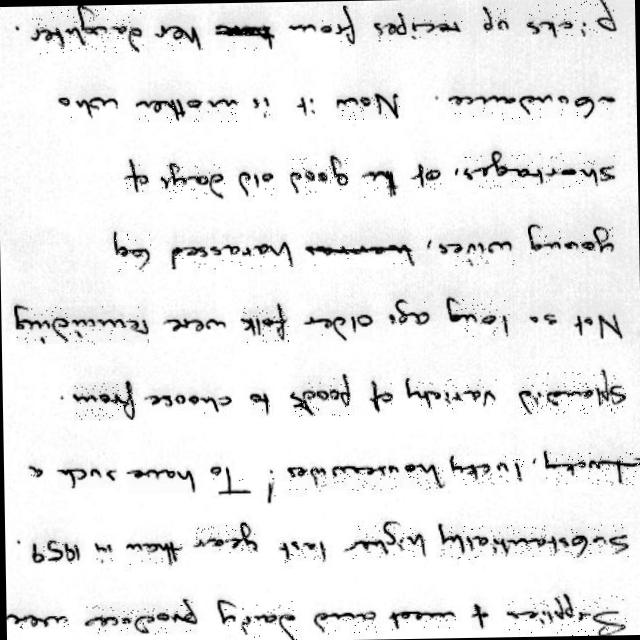 Supplies of meat and dairy produce were
substantially higher last year than in 1959.
Lucky, lucky housewives! To have such a
splendid variety of foods to choose from.
Not so long ago older folk were reminding
young wives, harassed by
shortages, of the good old days of
abundance. Now it is mother who
picks up recipes from her daughter.